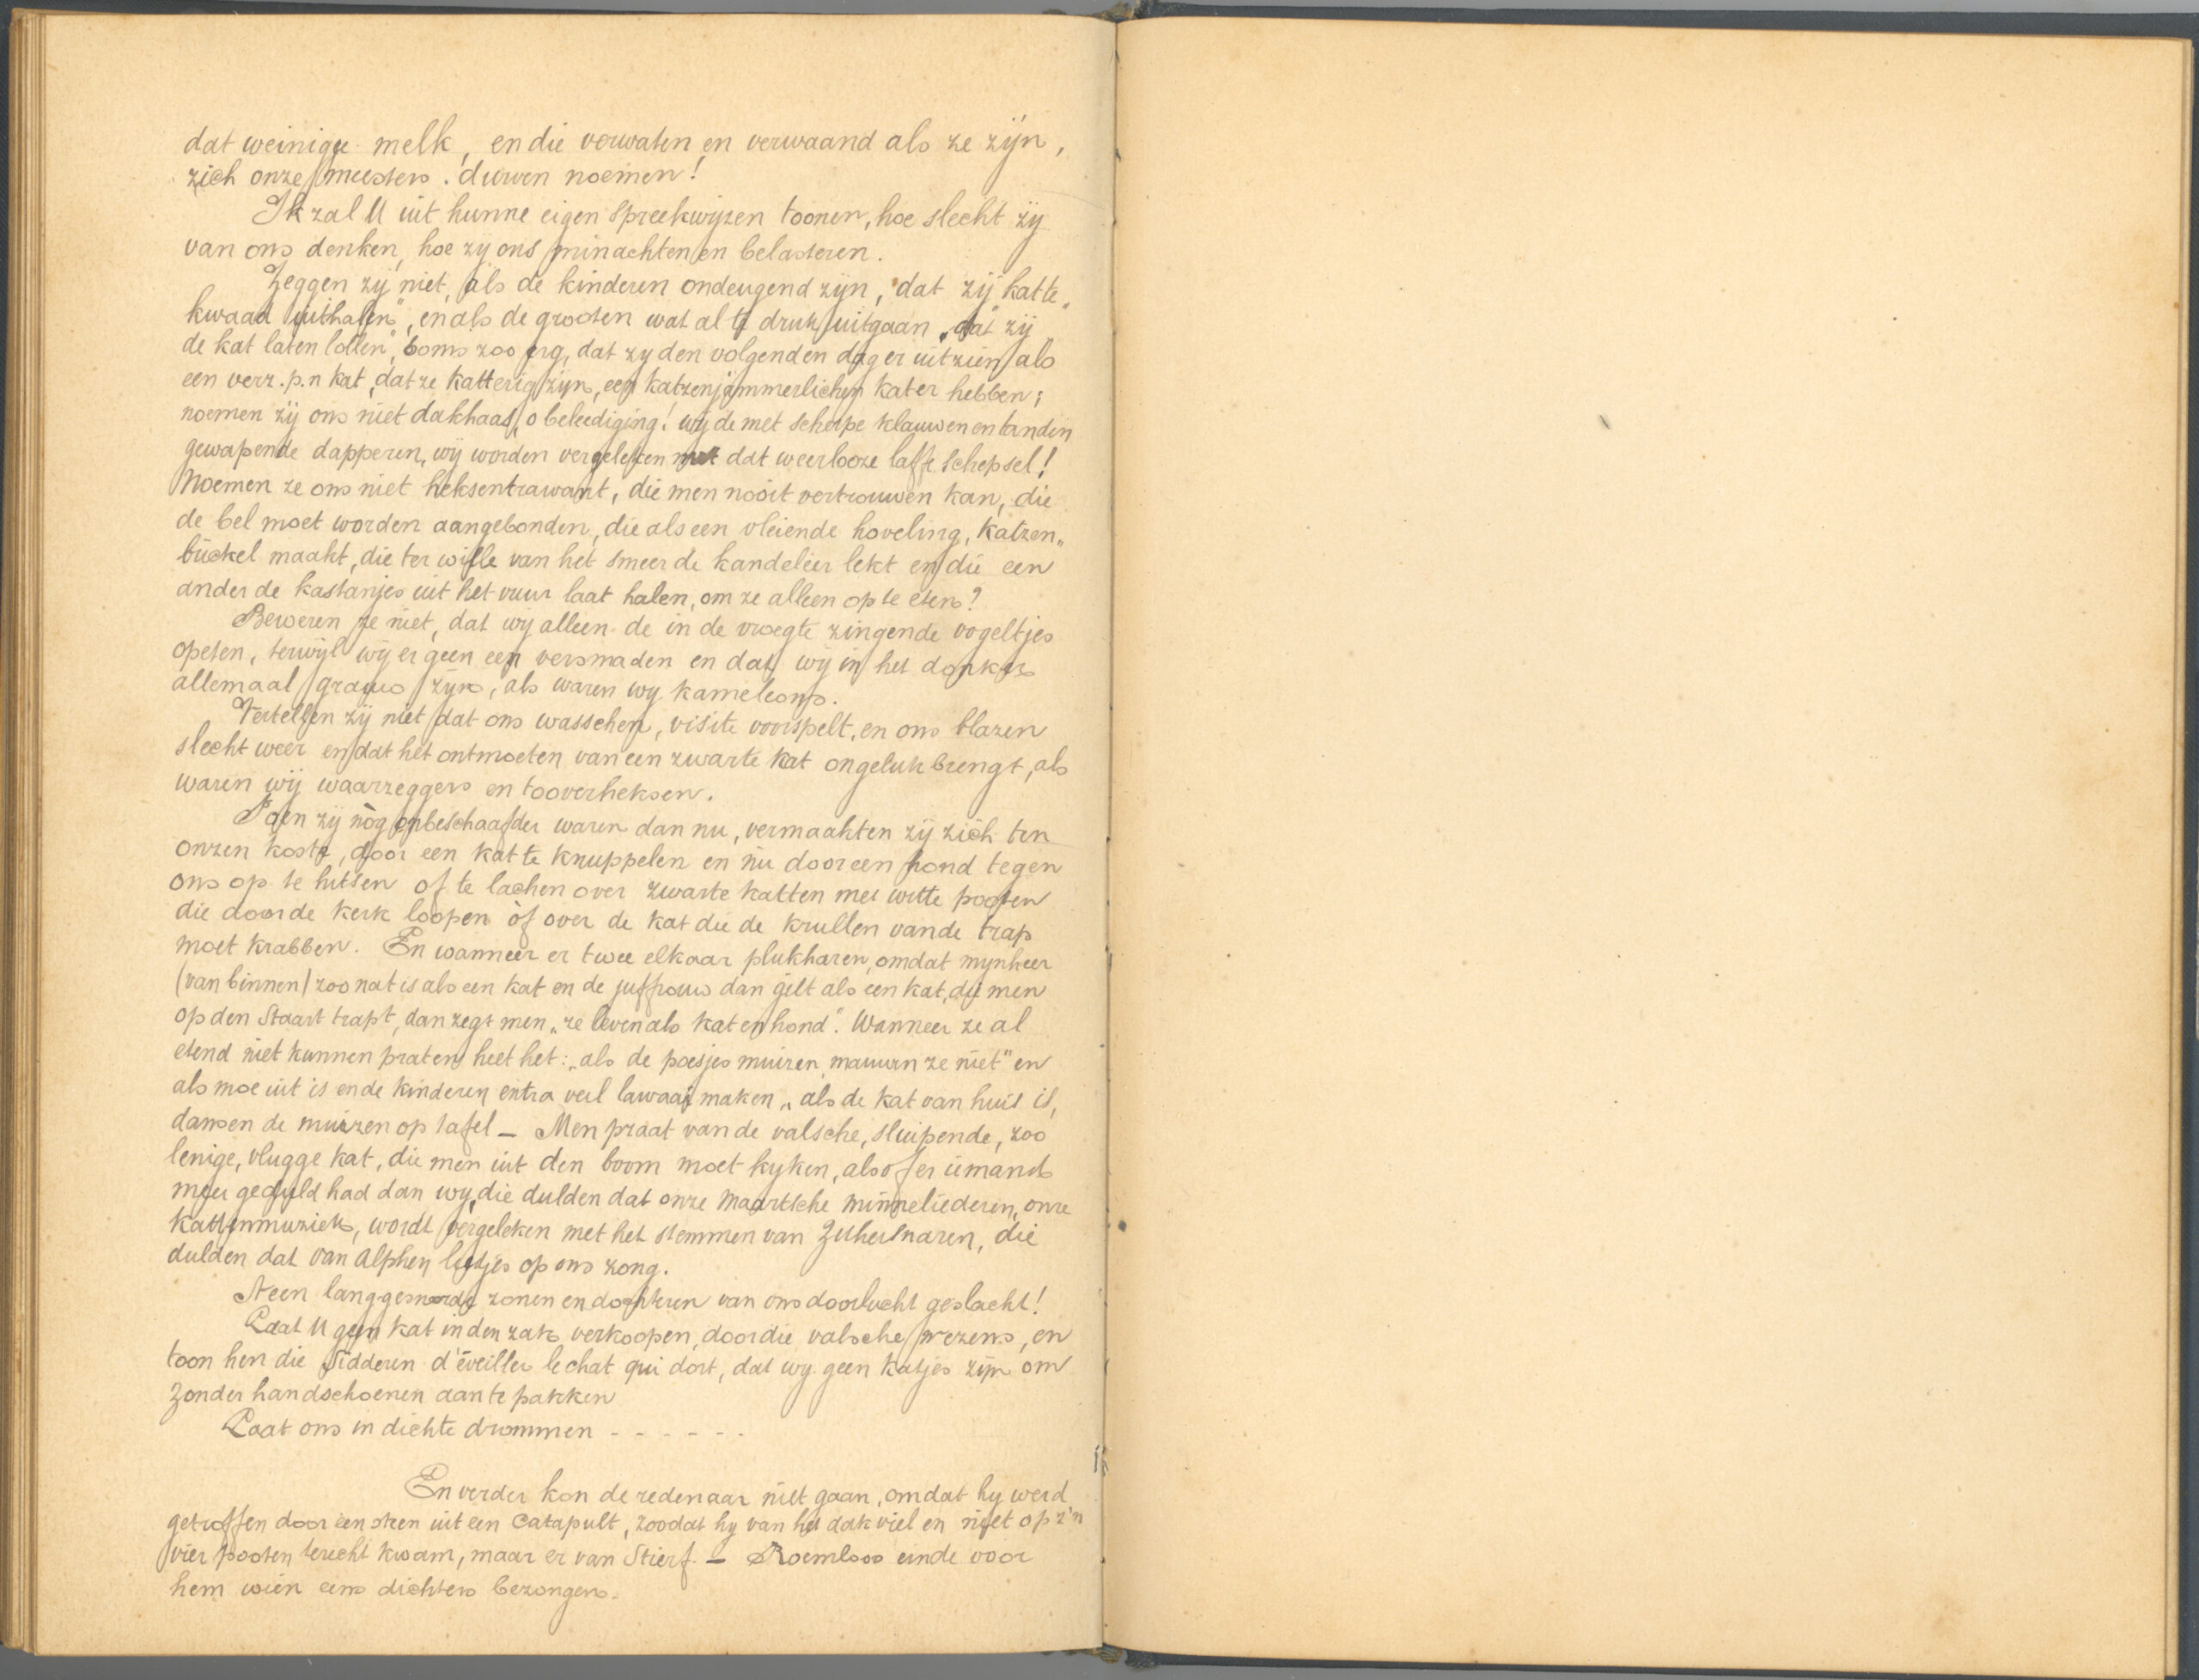 dat weinige melk, en die verwaten en verwaand als ze zijn,
zich onze meesters durven noemen!
Ik zal U uit hunne eigen spreekwijzen toonen, hoe slecht zij
van ons denken, hoe zij ons minachten en belasteren.
Zeggen zij niet, als de kinderen ondeugend zijn, dat zij katte„
kwaad uithalen", en als de grooten wat al te druk uitgaan „dat zij
de kat laten lollen", soms zoo erg, dat zy den volgenden dag er uitzien als
een verz.p.n kat, dat ze katterig zijn, een katzenjammerlichen kater hebben;
noemen zij ons niet dakhaas, o beleediging! wij de met scherpe klauwen en tanden
gewapende dapperen, wij worden vergeleken met dat weerlooze laffe schepsel!
Noemen ze ons niet heksentrawant, die men nooit vertrouwen kan, die
de bel moet worden aangebonden, die als een vleiende hoveling, Katzen„
bückel maakt, die ter wille van het smeer de kandeleer lekt en die een
ander de kastanjes uit het vuur laat halen, om ze alleen op te eten?
Beweren ze niet, dat wy alleen de in de vroegte zingende vogeltjes
opeten, terwijl wij er geen een versmaden en dat wij in het donker
allemaal grauw zijn, als waren wy kameleons.
Vertellen zij niet dat ons wasschen, visite voorspelt, en ons blazen
slecht weer en dat het ontmoeten van een zwarte kat ongeluk brengt, als
waren wij waarzeggers en tooverheksen.
Toen zij nòg onbeschaafder waren dan nu, vermaakten zij zich ten
onzen koste, door een kat te knuppelen en nu door een hond tegen
ons op te hitsen of te lachen over zwarte katten met witte pooten
die door de kerk loopen òf over de kat die de krullen van de trap
moet krabben. En wanneer er twee elkaar plukharen, omdat mynheer
(van binnen) zoo nat is als een kat en de juffrouw dan gilt als een kat, die men
op den staart trapt, dan zegt men „ze leven als kat en hond". Wanneer ze al
etend niet kunnen praten heet het: „als de poesjes muizen, mauwen ze niet" en
als moe uit is en de kinderen extra veel lawaai maken „als de kat van huis is,
dansen de muizen op tafel — Men praat van de valsche, sluipende, zoo
lenige, vlugge kat, die men uit den boom moet kyken, alsof er iemand
meer geduld had dan wy, die dulden dat onze Maartsche minneliederen, onze
kattenmuziek, wordt vergeleken met het stemmen van Zithersnaren, die
dulden dat van Alphen liedjes op ons zong.
Neen langgesnorde zonen en dochteren van ons doorlucht geslacht!
Laat U geen kat in den zak verkoopen, door die valsche wezens, en
toon hen die sidderen d'éveiller le chat qui dort, dat wy geen katjes zijn om
zonder handschoenen aan te pakken
Laat ons in dichte drommen - - - - - -
En verder kon de redenaar niet gaan, omdat hy werd
getroffen door een steen uit een catapult, zoodat hy van het dak viel en niet op z'n
vier pooten terecht kwam, maar er van stierf. — Roemloos einde voor
hem wien eens dichters bezongen.